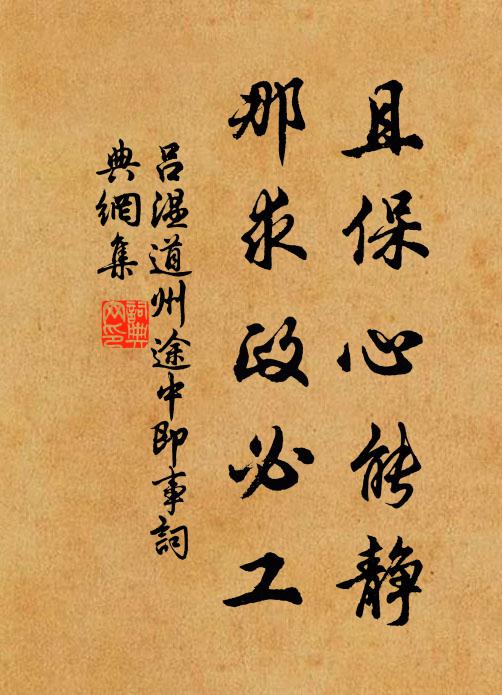 且保心能静
那求政必工
吕温道州途中即事詞
典網集
詞典
网印